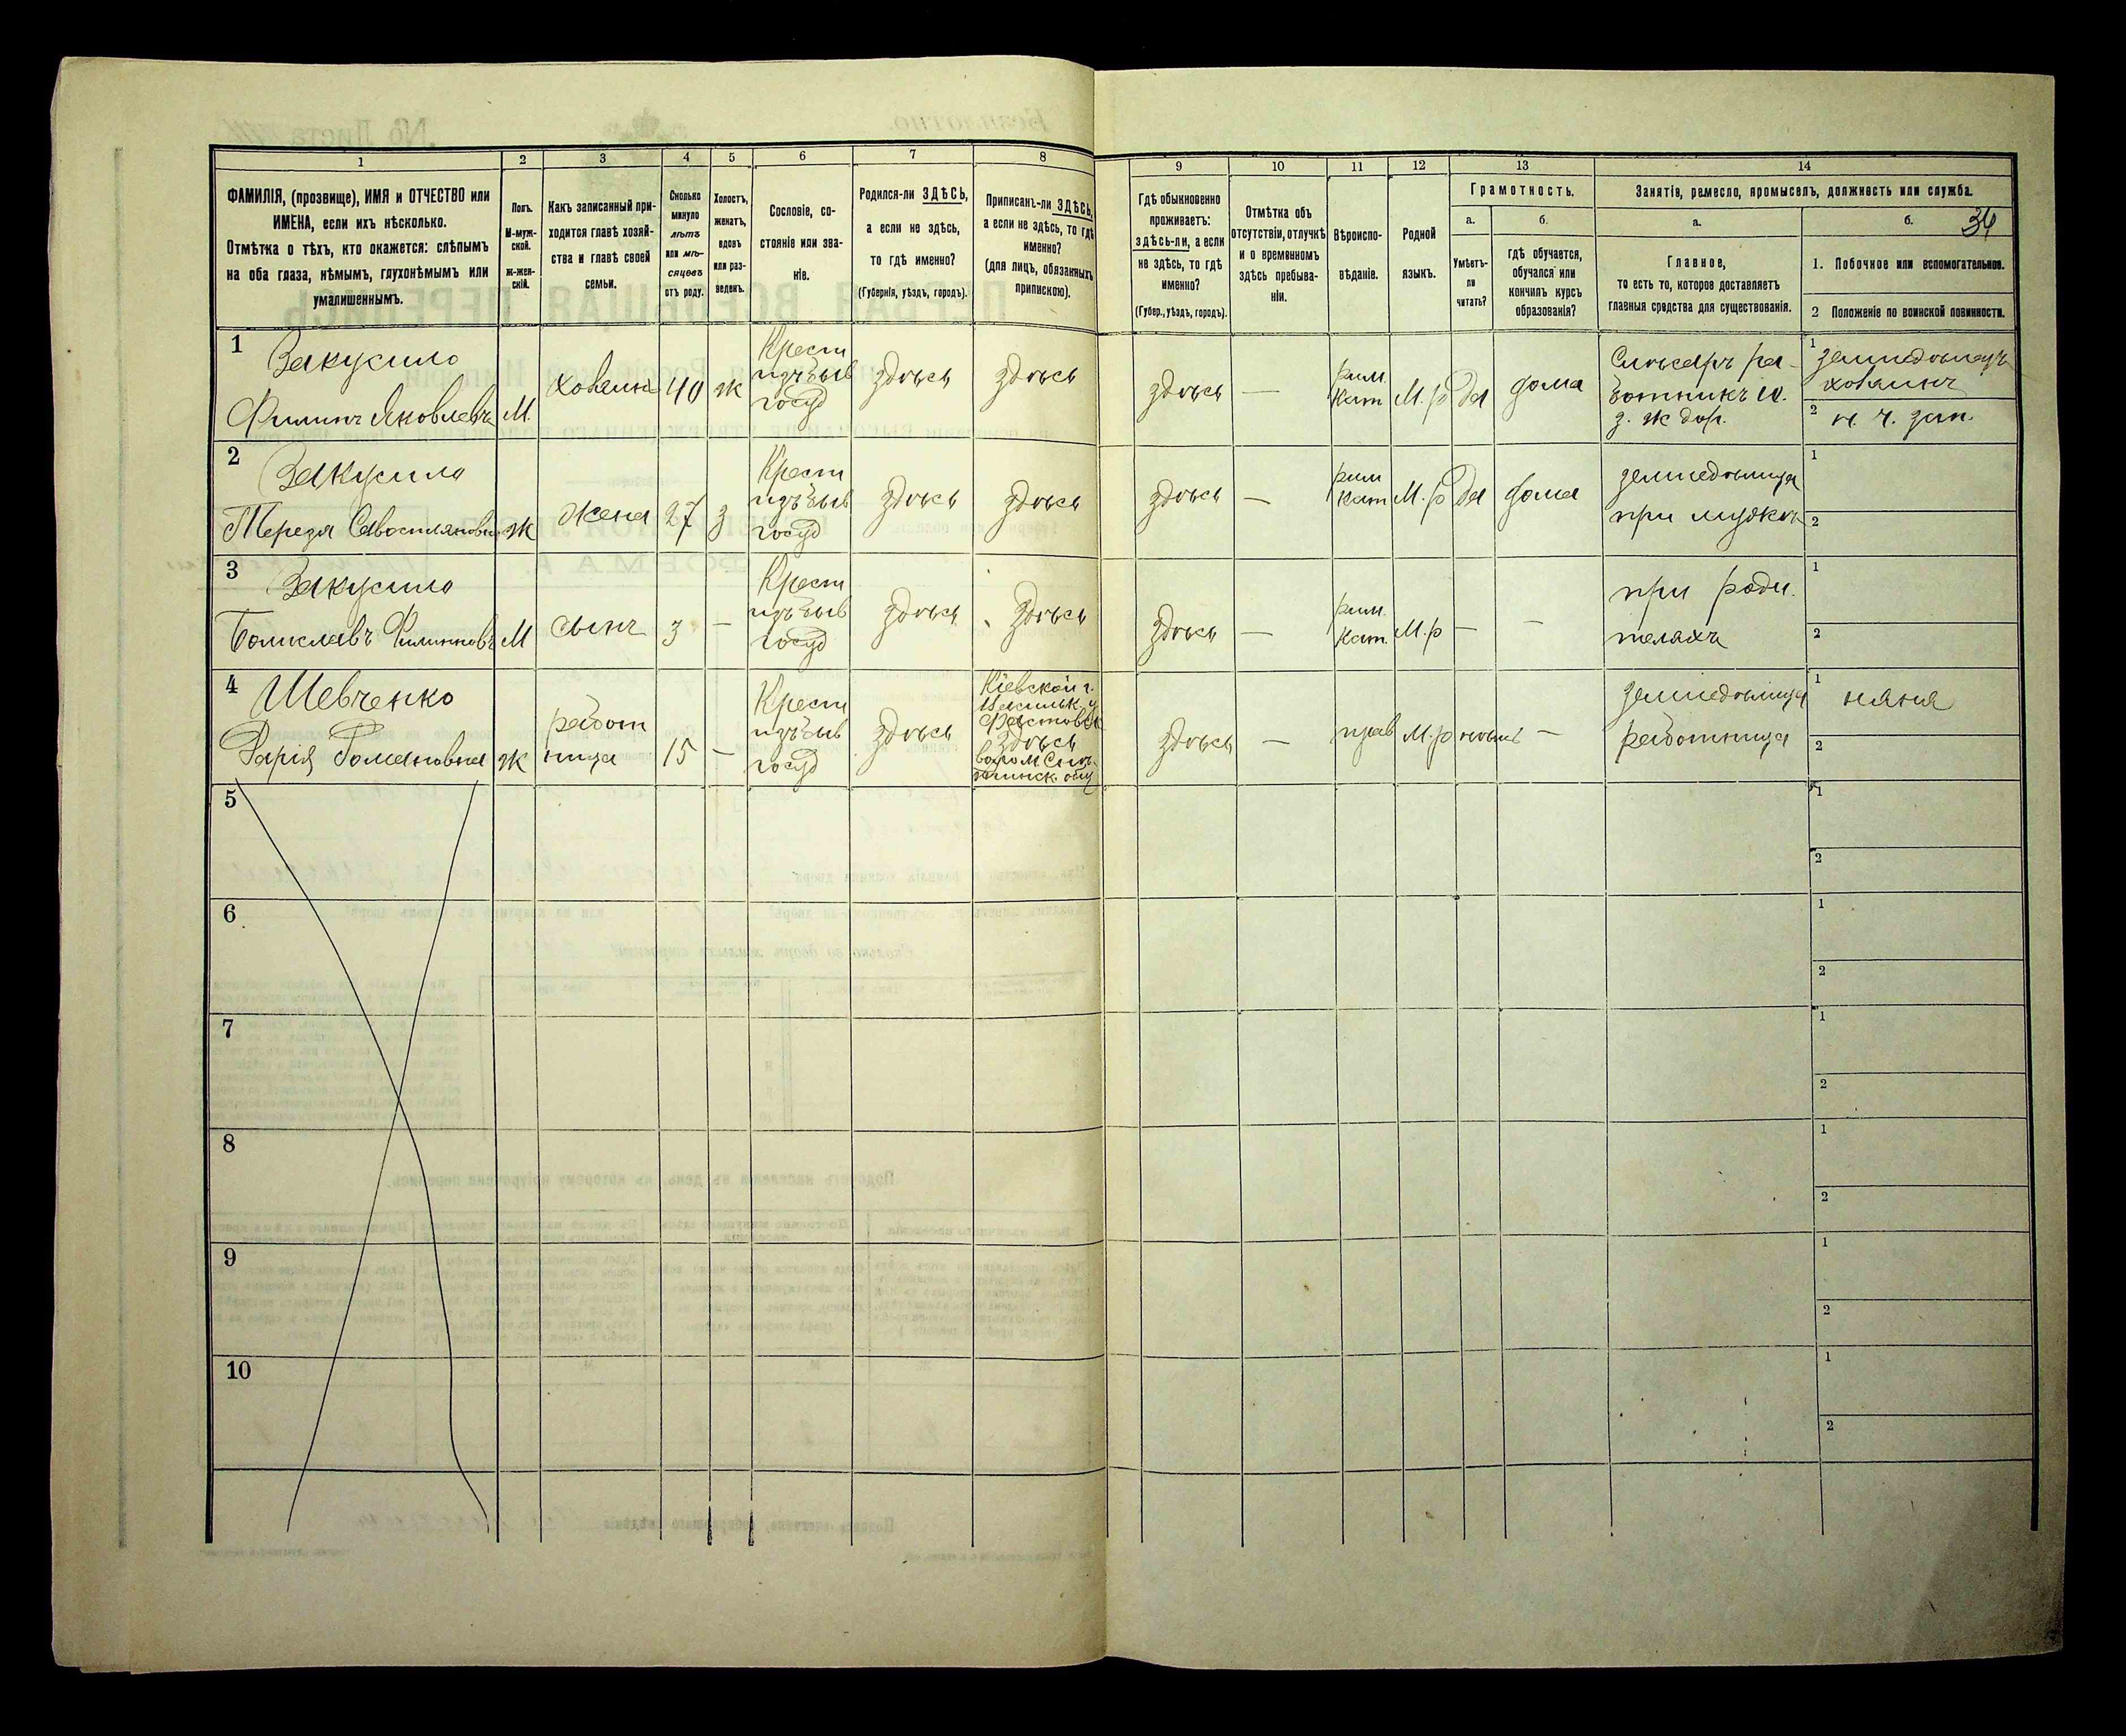 1 2 3 4 5 6 7 8 9 10 11 12 13 14
ФАМИЛІЯ, (прозвище), ИМЯ и ОТЧЕСТВО или
ИМЕНА, если ихъ нѣсколько.
Отмѣтка о тѣхъ, кто окажется: слѣпымъ
на оба глаза, нѣмымъ, глухонѣмымъ или
умалишеннымъ.
Полъ.
М-муж-
ской.
ж-жен-
скій.
Какъ записанный при-
ходится главѣ хозяй-
ства и главѣ своей
семьи.
Сколько
минуло
лѣтъ
или мѣ-
сяцевъ
отъ роду.
Холостъ,
женатъ,
вдовъ
или раз-
веденъ.
Сословіе, со-
стояніе или зва-
ніе.
Родился-ли ЗДѢСЬ,
а если не здѣсь,
то гдѣ именно?
(Губернія, уѣздъ, городъ).
Приписанъ-ли ЗДѢСЬ,
а если не здѣсь, то гдѣ
именно?
(для лицъ, обязанныхъ
припискою).
Гдѣ обыкновенно
проживаетъ:
здѣсь-ли, а если
не здѣсь, то гдѣ
именно?
(Губер., уѣздъ, городъ).
Отмѣтка объ
отсутствіи, отлучкѣ
и о временномъ
здѣсь пребыва-
ніи.
Вѣроиспо-
вѣданіе.
Родной
языкъ.
Грамотность.
а.
Умѣетъ-
ли
читать?
б.
гдѣ обучается,
обучался или
кончилъ курсъ
образованія?
Занятіе, ремесло, промыселъ, должность или служба.
а.
Главное,
то есть то, которое доставляетъ
главныя средства для существованія.
б. 34
1. Побочное или вспомогательное.
2 Положеніе по воинской повинности.
1
Закусило
Филипъ Яковлевъ
М.
хозяинъ
40
ж
Крест
изъ быв
госуд
здѣсь
здѣсь
здѣсь
—
рим.
кат
М.р
да
дома
Слесарь ра-
ботникъ Ю.
З. ж дор.
1 земледѣлецъ
хозяинъ
2 н. ч. зап.
2
Закусило
Тереза Савостіяновна
ж
жена
27
з
Крест
изъ быв
госуд
здѣсь
здѣсь
здѣсь
—
рим
кат
М.р
да
дома
земледѣлица
при мужѣ
1
2
3
Закусило
Болиславъ Филипповъ
М
сынъ
3
—
Крест
изъ быв
госуд
здѣсь
здѣсь
здѣсь
—
рим.
кат.
М.р
—
—
при роди.
теляхъ
1
2
4
Шевченко
Дарія Романовна
ж
работ
ница
15
—
Крест
изъ быв
госуд
здѣсь
Кіевской г.
Васильк. у
Фастовск
здѣсь
общ
здѣсь
—
прав
М.р
нѣтъ
—
земледѣлица
работница
1 няня
2
5
1
2
6
1
2
7
1
2
8
1
2
9
1
2
10
1
2